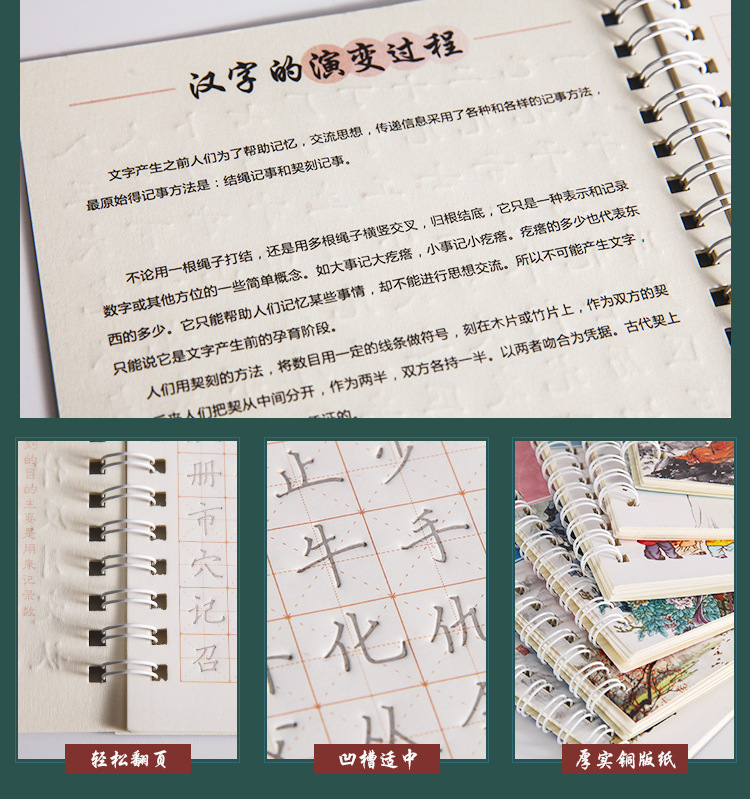 汉字的演变过程
文字产生之前人们为了帮助记忆，交流思想，传递信息采用了各种和各样的记事方法，
最原始得记事方法是：结绳记事和契刻记事。
不论用一根绳子打结，还是用多根绳子横竖交叉，归根结底，它只是一种表示和记录
数字或其他方位的一些简单概念。如大事记大疙瘩，小事记小疙瘩。疙瘩的多少也代表东
西的多少。它只能帮助人们记忆某些事情，却不能进行思想交流。所以不可能产生文字，
只能说它是文字产生前的孕育阶段。
人们用契刻的方法，将数目用一定的线条做符号，刻在木片或竹片上，作为双方的契
来人们把契从中间分开，作为两半，双方各持一半。以两者吻合为凭据。古代契上
的目的主要是用来记录
册
市
穴
记
召
止少
牛手
化仇
轻松翻页
凹槽适中
厚实铜版纸